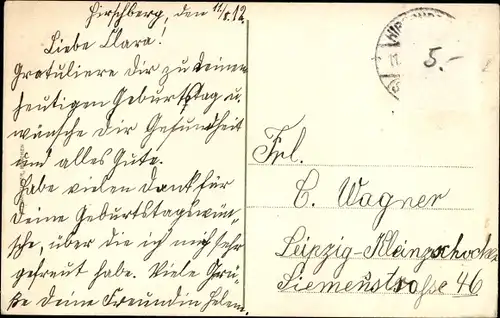 Hirschberg, den 11/8.12.
Liebe Clara!
Gratuliere dir zu deinem
heutigen Geburtstag u.
wünsche dir Gesundheit
und alles Gute.
Habe vielen Dank für
deine Geburtstagswün-
sche, über die ich mich sehr
gefreut habe. Viele Grü-
ße deine Freundin Helene
5.-
Frl.
C. Wagner
Leipzig-Kleinzschocher
Siemensstrasse 46